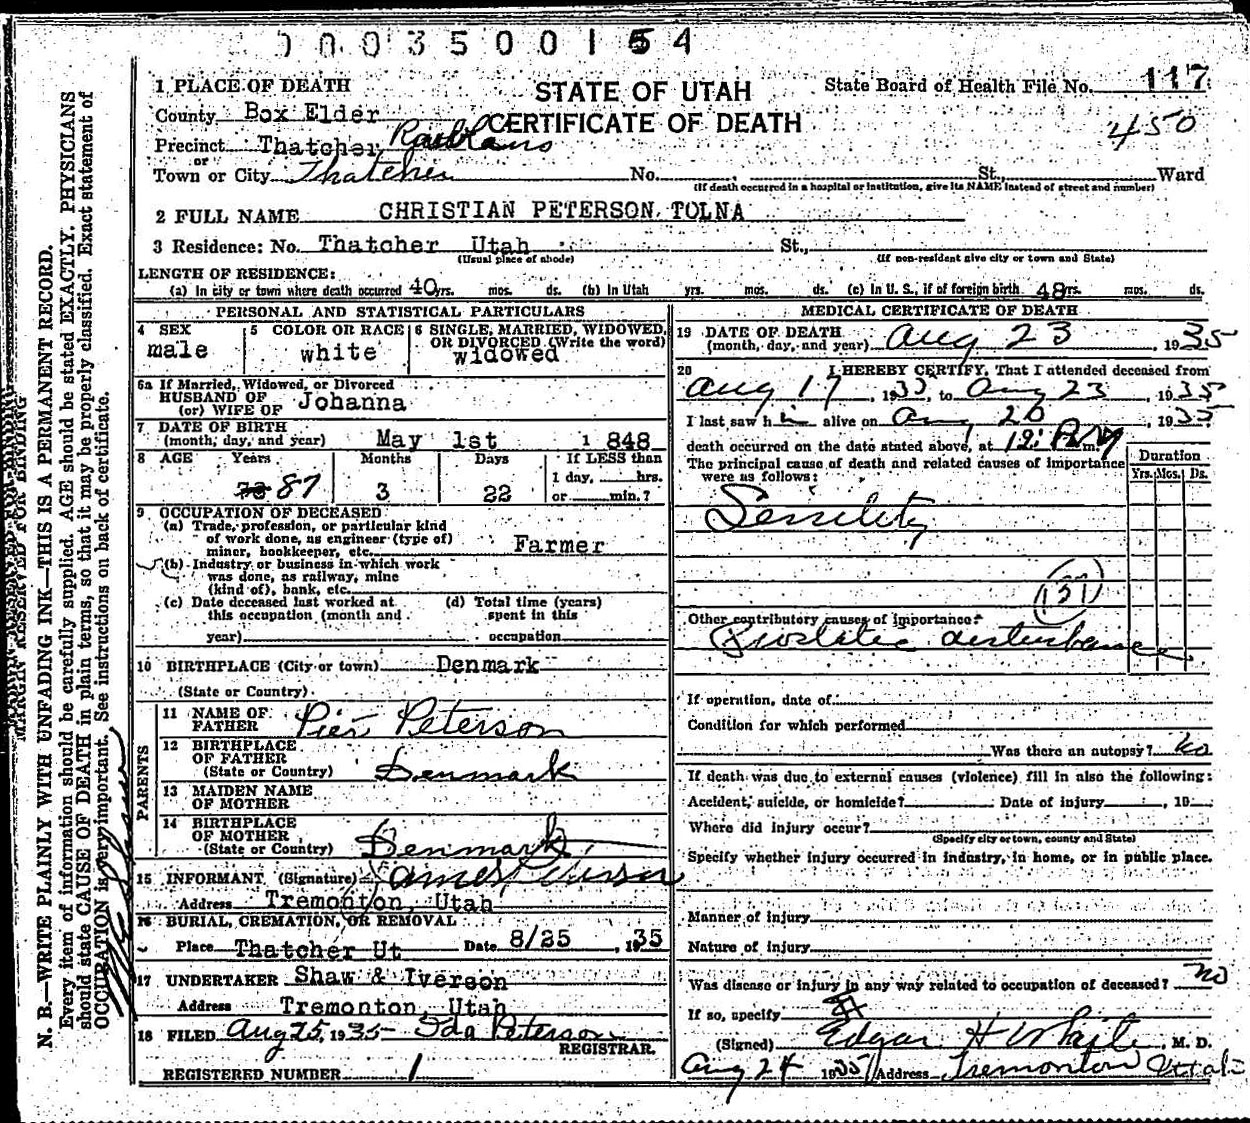 0003500154
1 PLACE OF DEATH
STATE OF UTAH
State Board of Health File No. 117
County Box Elder
CERTIFICATE OF DEATH
450
Precinct Thatcher
or
Town or City Thatcher No. St., Ward
(If death occurred in a hospital or institution, give its NAME instead of street and number)
2 FULL NAME CHRISTIAN PETERSON TOLNA
3 Residence: No. Thatcher Utah St.,
(Usual place of abode) (If non-resident give city or town and State)
LENGTH OF RESIDENCE:
(a) In city or town where death occurred 40 yrs. mos. ds. (b) In Utah yrs. mos. ds. (c) In U. S., if of foreign birth 48 yrs. mos. ds.
PERSONAL AND STATISTICAL PARTICULARS
4 SEX
male
5 COLOR OR RACE
white
6 SINGLE, MARRIED, WIDOWED,
OR DIVORCED (Write the word)
widowed
6a If Married, Widowed, or Divorced
HUSBAND OF
(or) WIFE OF Johanna
7 DATE OF BIRTH
(month, day, and year) May 1st 1848
8 AGE Years Months Days If LESS than
1 day, hrs.
87 3 22 or min.?
9 OCCUPATION OF DECEASED
(a) Trade, profession, or particular kind
of work done, as engineer (type of)
miner, bookkeeper, etc. Farmer
(b) Industry or business in which work
was done, as railway, mine
(kind of), bank, etc.
(c) Date deceased last worked at
this occupation (month and
year)
(d) Total time (years)
spent in this
occupation
10 BIRTHPLACE (City or town) Denmark
(State or Country)
PARENTS
11 NAME OF
FATHER Pier Peterson
12 BIRTHPLACE
OF FATHER
(State or Country) Denmark
13 MAIDEN NAME
OF MOTHER
14 BIRTHPLACE
OF MOTHER
(State or Country) Denmark
15 INFORMANT (Signature) James
Address Tremonton, Utah
16 BURIAL, CREMATION, OR REMOVAL
Place Thatcher Ut Date 8/25, 1935
17 UNDERTAKER Shaw & Iverson
Address Tremonton, Utah
18 FILED Aug 25, 1935 Ida Peterson
REGISTRAR.
REGISTERED NUMBER 1
MEDICAL CERTIFICATE OF DEATH
19 DATE OF DEATH
(month, day, and year) Aug 23, 1935
20 I HEREBY CERTIFY, That I attended deceased from
Aug 17, 1935, to Aug 23, 1935
I last saw h i alive on Aug 20, 1935
death occurred on the date stated above, at 12: P m.
The principal cause of death and related causes of importance
were as follows:
Duration
Yrs. Mos. Ds.
Senility
Other contributory causes of importance:
Prostatic disturbance
If operation, date of
Condition for which performed
Was there an autopsy? No
If death was due to external causes (violence) fill in also the following:
Accident, suicide, or homicide? Date of injury, 19
Where did injury occur?
(Specify city or town, county and State)
Specify whether injury occurred in industry, in home, or in public place.
Manner of injury
Nature of injury
Was disease or injury in any way related to occupation of deceased? no
If so, specify
(Signed) Edgar H White, M. D.
Aug 24 1935 Address Tremonton Utah
MARGIN RESERVED FOR BINDING
N. B.—WRITE PLAINLY WITH UNFADING INK—THIS IS A PERMANENT RECORD.
Every item of information should be carefully supplied. AGE should be stated EXACTLY. PHYSICIANS
should state CAUSE OF DEATH in plain terms, so that it may be properly classified. Exact statement of
OCCUPATION is very important. See instructions on back of certificate.